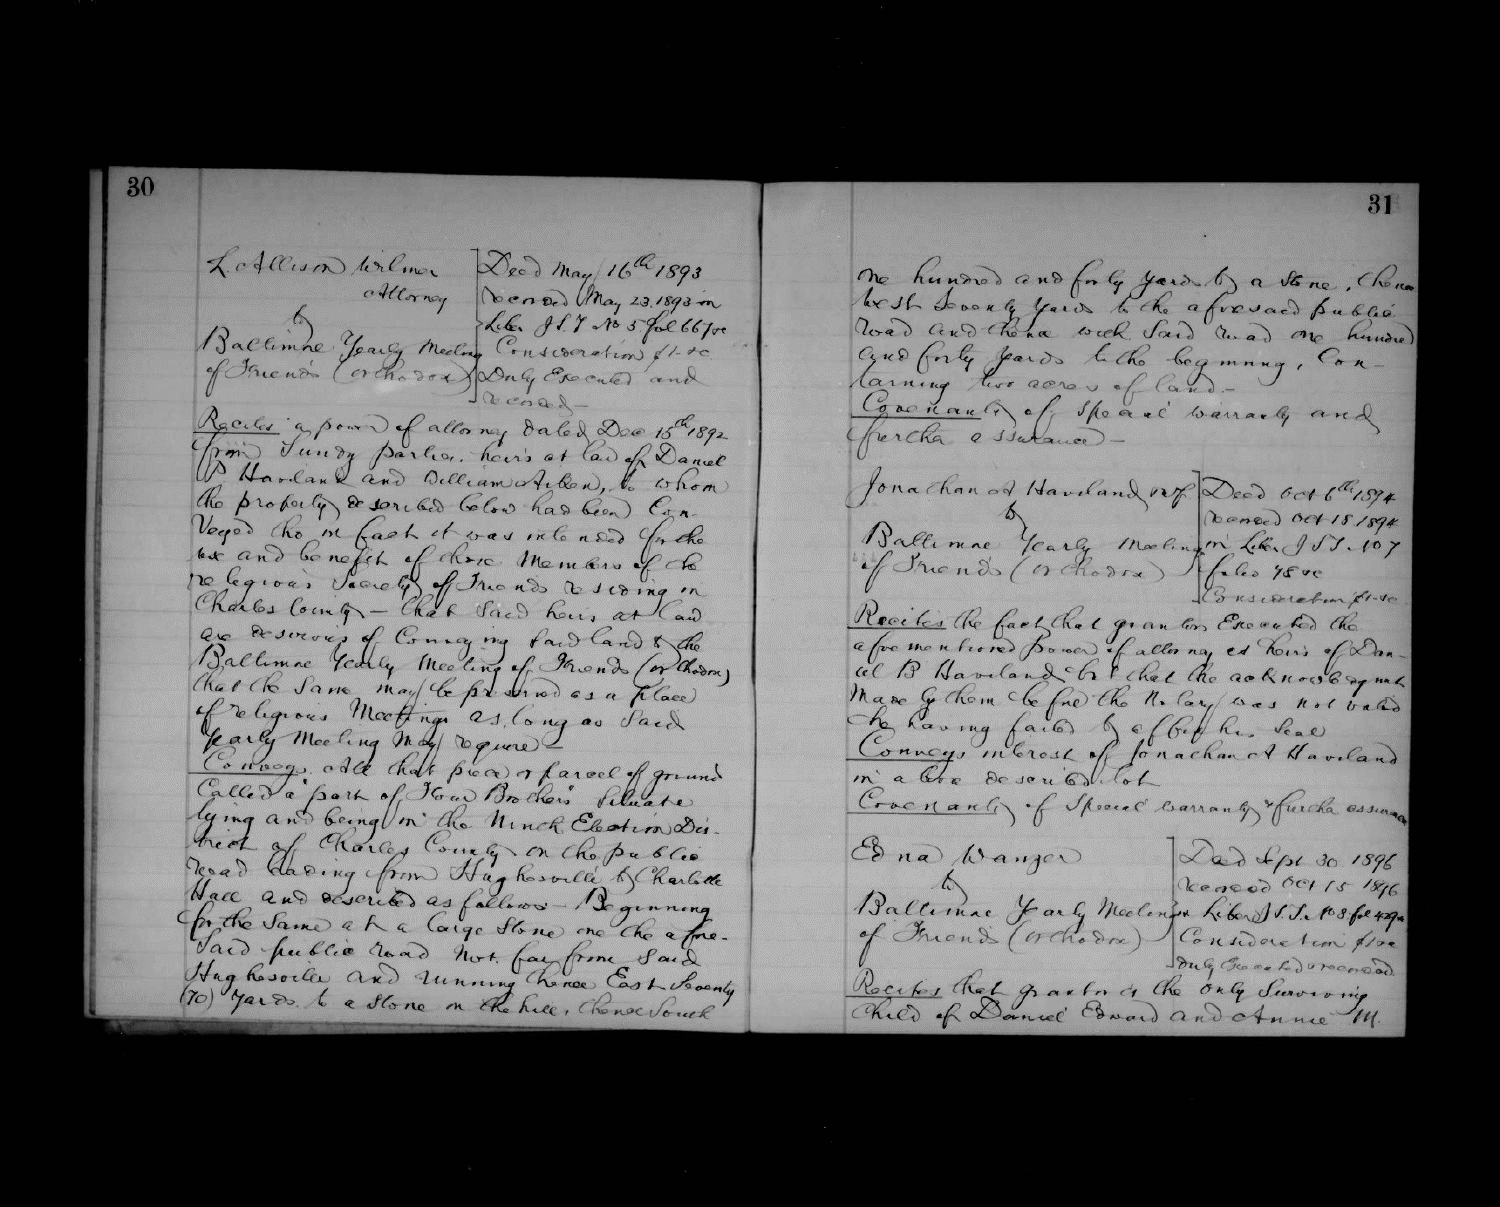 30
L. Allison Wilmer
Attorney
to
Baltimore Yearly Meeting
of Friends (orthodox)
Deed May 16th 1893
recorded May 23, 1893 in
Liber J.S.T. No 5 fol 667 &c
Consideration $1.&c
Duly Executed and
recorded—
Recites a power of attorney dated Dec 15th 1892
from Sundry parties. heirs at law of Daniel
B Haviland and William Aiken, to whom
the property described below had been Con-
veyed tho in fact it was intended for the
use and benefit of those Members of the
religious Society of Friends residing in
Charles County — that said heirs at law
are desirous of Conveying said land to the
Baltimore Yearly Meeting of Friends (orthodox)
that the same may be preserved as a place
of religious Meetings as long as said
yearly Meeting May require —
Conveys. All that piece or parcel of ground
Called a "part of Four Brothers" Situate
lying and being in the Ninth Election Dis-
trict of Charles County on the public
road leading from Hughesville to Charlotte
Hall and described as follows — Beginning
for the same at a large stone one the afore-
said public road not far from said
Hughesville and running thence East Seventy
(70) Yards to a stone on the hill, thence South
31
one hundred and forty Yards to a stone, thence
West Seventy Yards to the aforesaid public
road and thence with said road one hundred
and forty Yards to the beginning, Con-
taining two acres of land.—
Covenants of special warranty and
further assurance —
Jonathan A Haviland &wf
to
Baltimore Yearly Meeting
of Friends (orthodox)
Deed Oct 6th 1894
recorded Oct 18 1894
in Liber J S T No 7
folio 78 &c
Consideration $1.&c
Recites the fact that grantors Executed the
aforementioned power of attorney as heirs of Dan-
iel B Haviland but that the acknowledgment
Made by them before the Notary was not valid
he having failed to affix his seal
Conveys interest of Jonathan A Haviland
in above described lot
Covenants of special warranty & further assurance
Edna Wanzer
to
Baltimore Yearly Meeting
of Friends (orthodox)
Deed Sept 30 1896
recorded Oct 15 1896
in Liber J.S.T. No 8 fol 429 &c
Consideration $1 &c
Duly Executed & recorded
Recites that grantor is the only surviving
Child of Daniel Edward and Annie M.